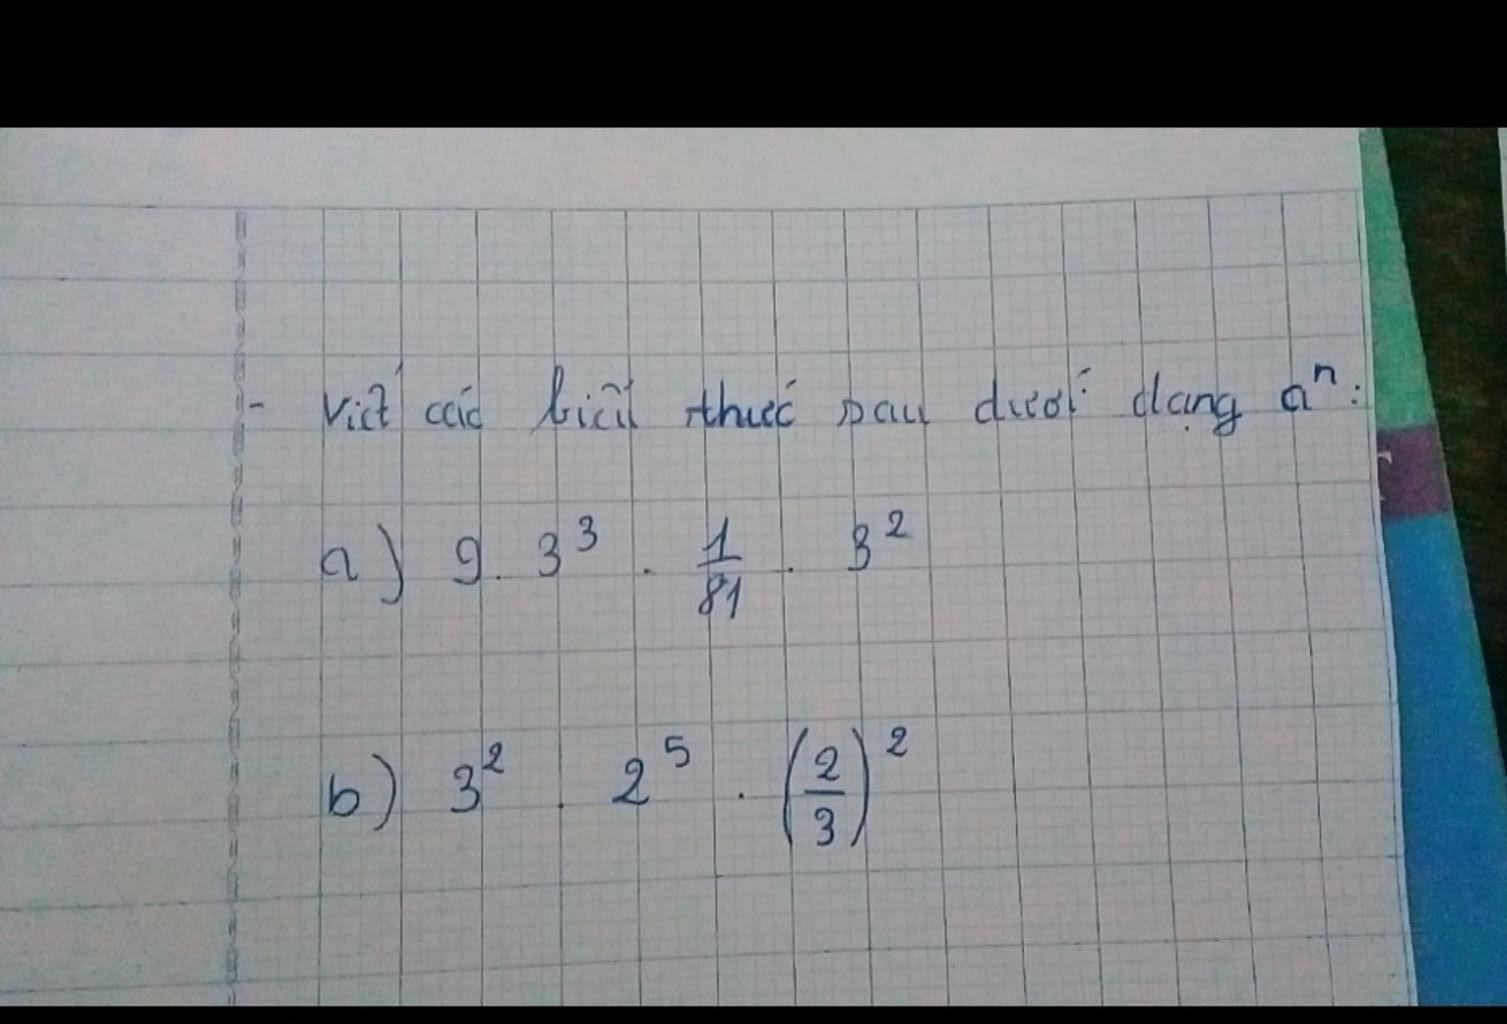 - Viết các biểu thức sau dưới dạng aⁿ:
a) 9. 3³ . 1/81 . 3²
b) 3² . 2⁵ . (2/3)²